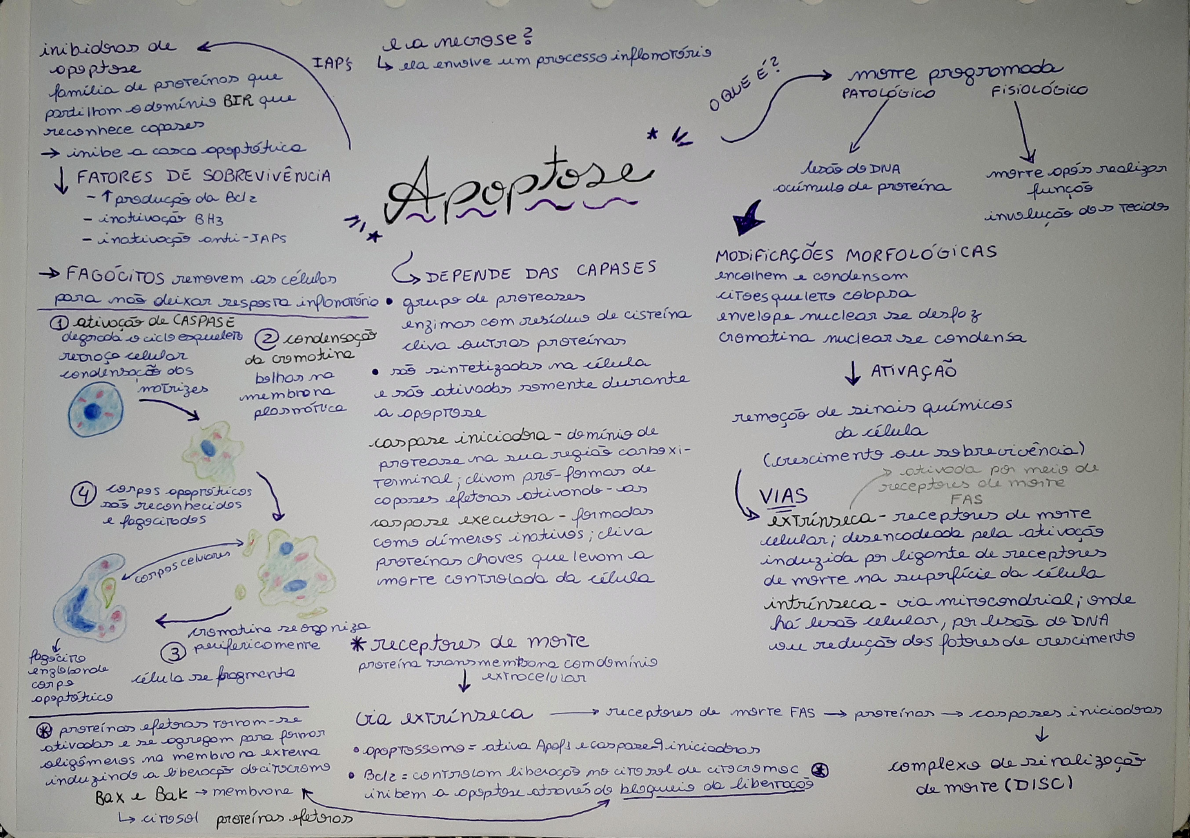 Apoptose
inibidras de
apoptose
família de proteínas que
partilham o domínio BIR que
reconhece capases
→ inibe a casca apoptótica
IAPs
↓ FATORES DE SOBREVIVÊNCIA
- ↑ produção da Bcl2
- inativação BH3
- inativação anti-IAPs
→ FAGÓCITOS removem as células
para não deixar resposta inflamatório
e a necrose?
↳ ela envolve um processo inflamatório
O QUE É?
morte programada
PATOLÓGICO FISIOLÓGICO
lesão do DNA
acúmulo de proteína
morte após realizar
função
involução dos tecidos
MODIFICAÇÕES MORFOLÓGICAS
encolhem e condensam
citoesqueleto colapsa
envelope nuclear se desfaz
cromatina nuclear se condensa
↓ ATIVAÇÃO
remoção de sinais químicos
da célula
(crescimento ou sobrevivência)
→ ativada por meio de
receptores de morte
FAS
VIAS
extrínseca - receptores de morte
celular; desencadeada pela ativação
induzida por ligante de receptores
de morte na superfície da célula
intrínseca - via mitocondrial; onde
há lesão celular, por lesão do DNA
ou redução dos fatores de crescimento
DEPENDE DAS CAPASES
• grupo de proteases
enzimas com resíduo de cisteína
cliva outras proteínas
• são sintetizadas na célula
e são ativadas somente durante
a apoptose
caspase iniciadra - domínio de
protease na sua região carboxi-
terminal; clivam pró-formas de
capases efetoras ativando-as
caspase executora - formadas
como dímeros inativos; cliva
proteínas chaves que levam a
morte controlada da célula
① ativação de CASPASE
degrada o cicloesqueleto
retraço celular
condensação dos
matrizes
② condensação
da cromatina
bolhas na
membrana
plasmática
④ corpos apoptóticos
são reconhecidos
e fagocitados
corpos celulares
cromatina se organiza
③ perifericamente
célula se fragmenta
fagócito
englobando
corpo
apoptótico
* receptores de morte
proteína transmembrana com domínio
↓ extracelular
via extrínseca → receptores de morte FAS → proteínas → caspases iniciadoras
↓
complexo de sinalização
de morte (DISC)
• apoptossomo = ativa Apaf1 e caspase 9 iniciadras
• Bcl2 = controlam liberação no citosol de citocromo c ⊛
inibem a apoptose através do bloqueio da liberração
⊛ proteínas efetoras tornam-se
ativadas e se agregam para formar
oligômeros na membrana externa
induzindo a liberação do citocromo
Bax e Bak → membrana
↳ citosol proteínas efetoras